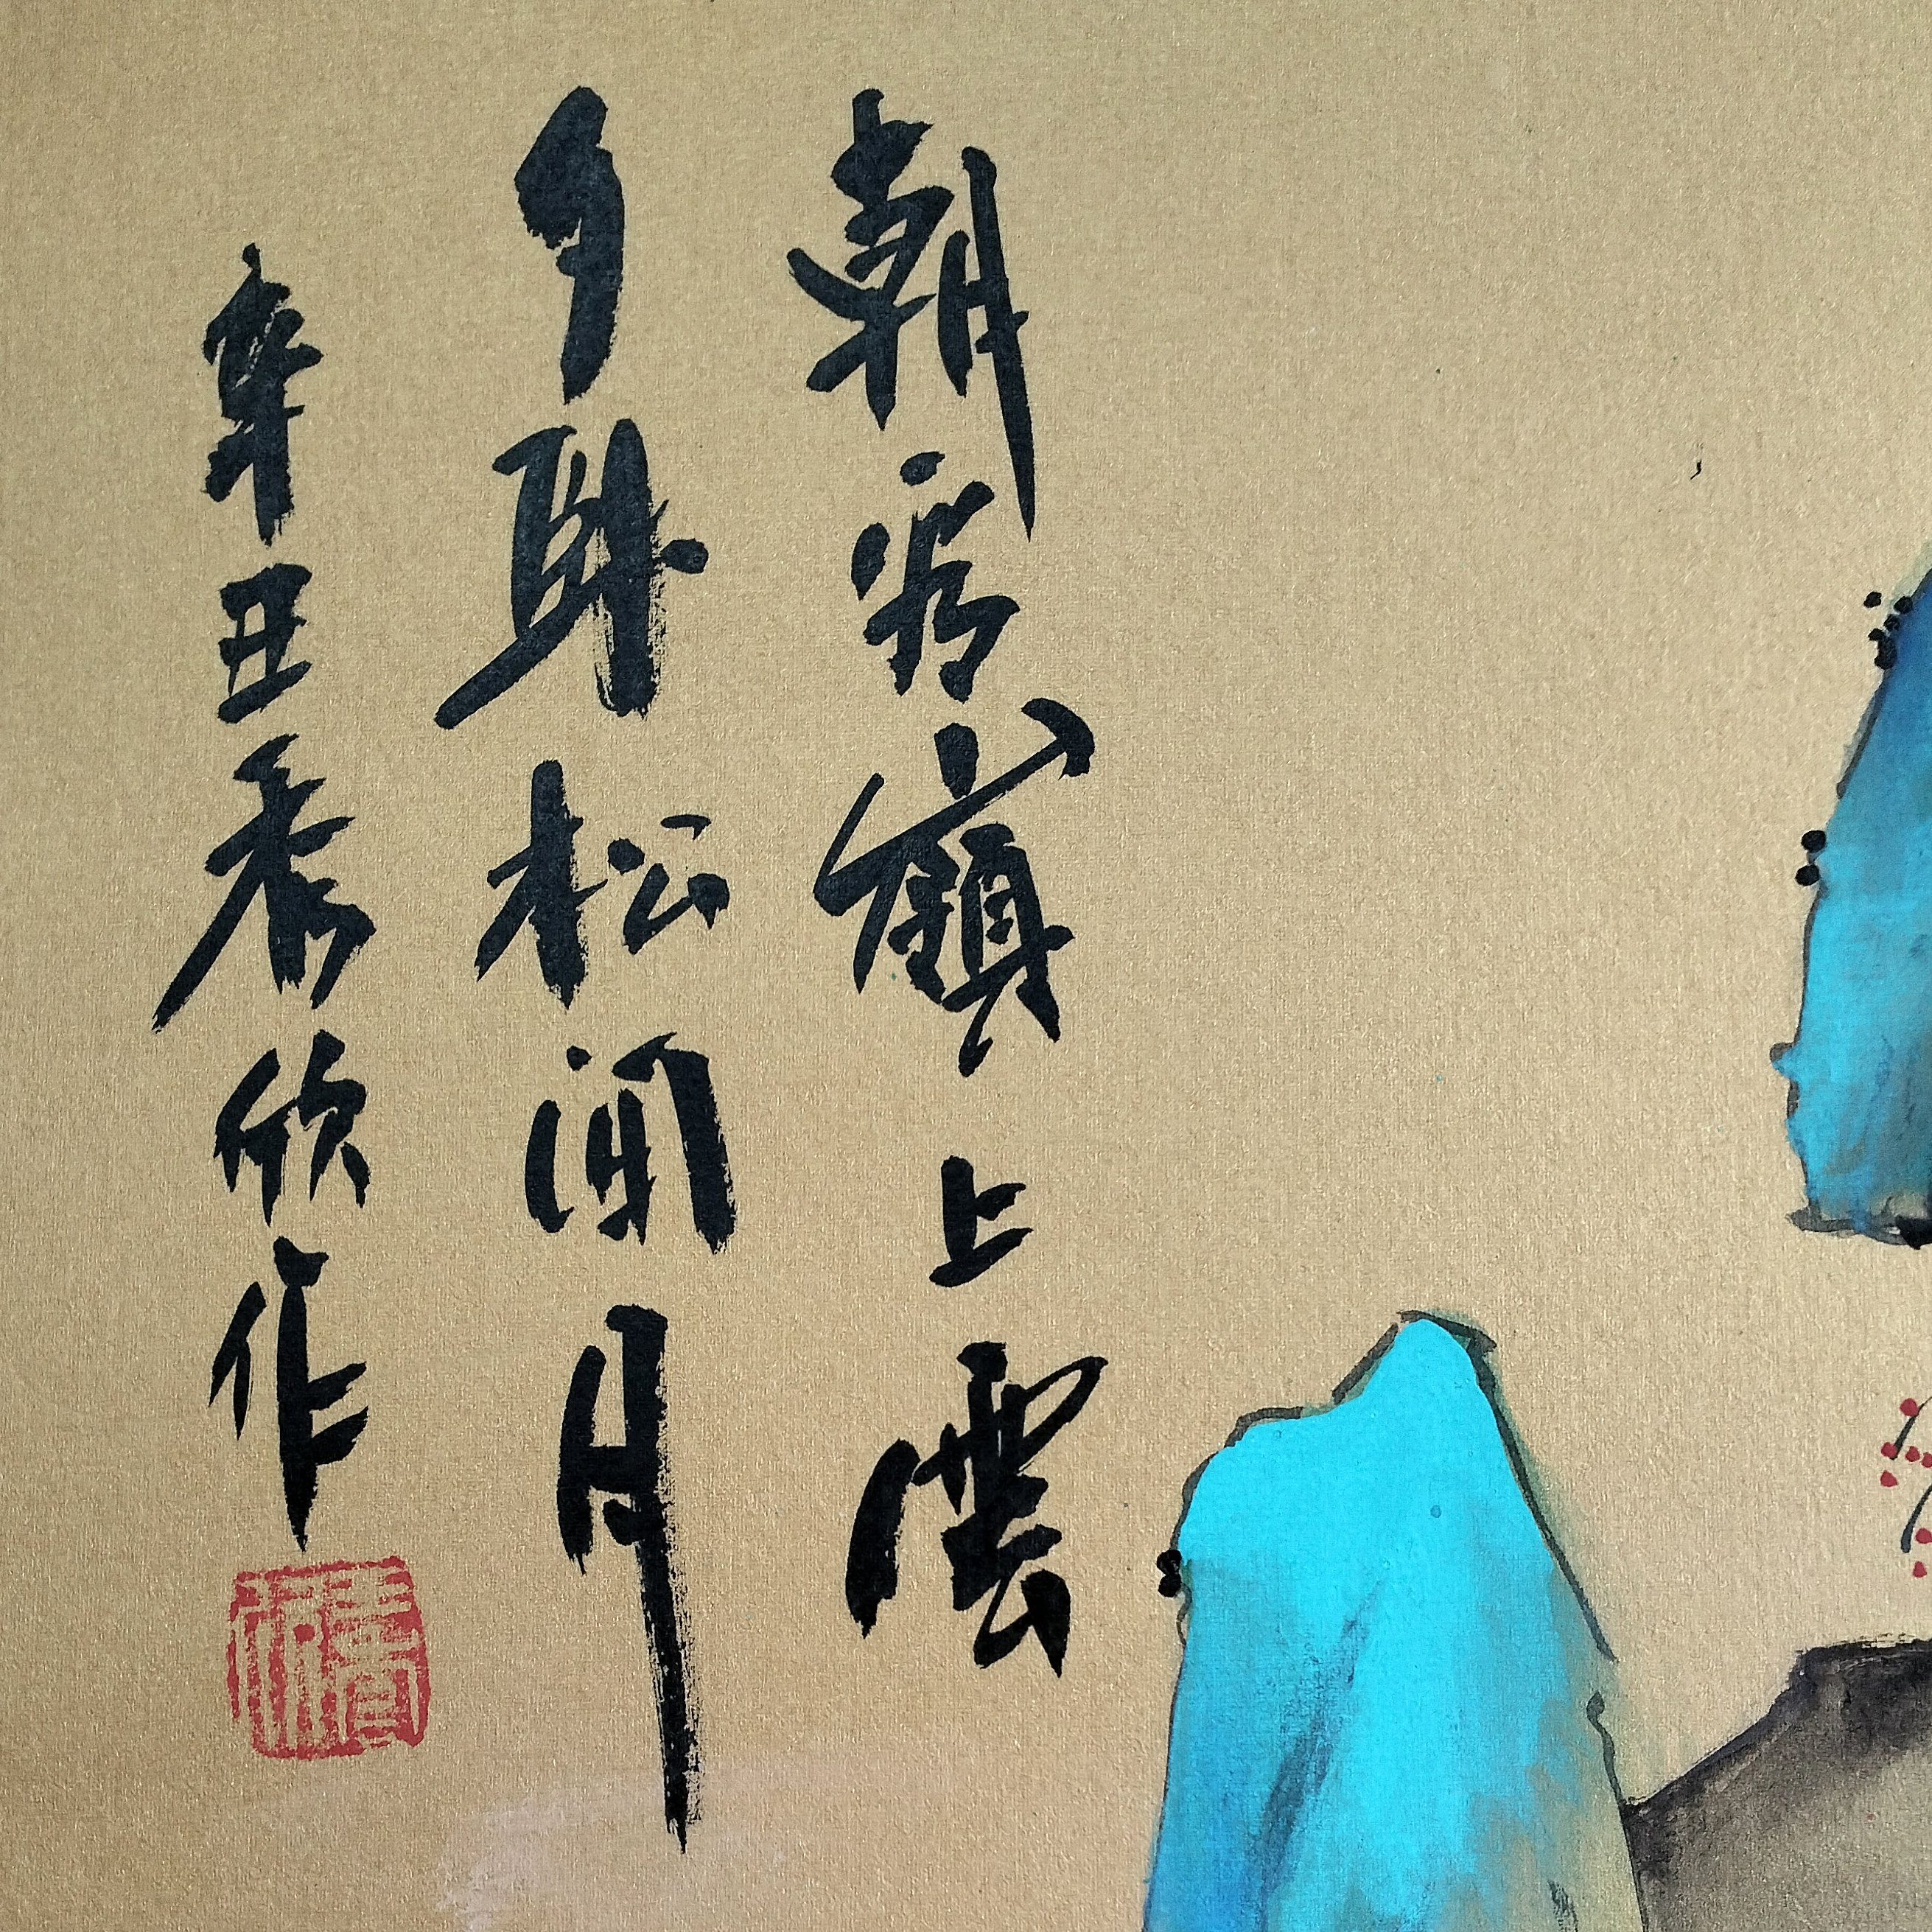 朝看嶺上雲
夕卧松間月
辛丑秀欣作